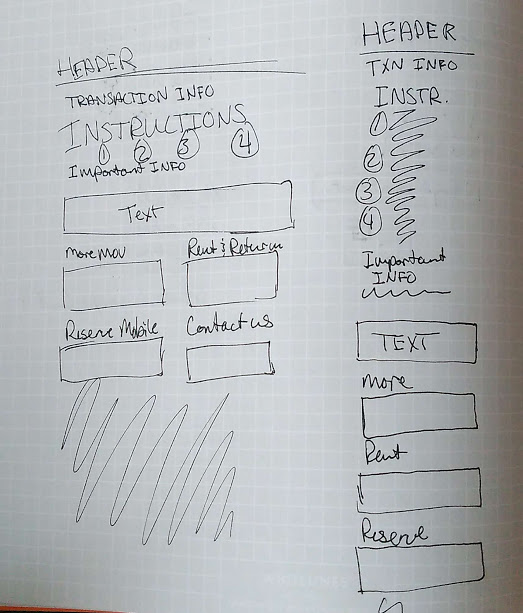 HEADER
TRANSACTION INFO
INSTRUCTIONS
1 2 3 4
Important INFO
Text
more Mov
Rent & Return
Riserve Mobile
Contact us
HEADER
TXN INFO
INSTR.
1
2
3
4
Important
INFO
TEXT
more
Rent
Riserve